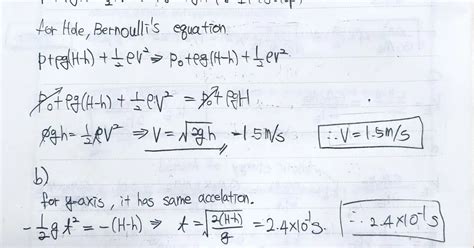 for Hole, Bernoulli's equation.
P+ρg(H-h)+½ρv² ⇒ P₀+ρg(H-h)+½ρv².
P₀+ρg(H-h)+½ρv² = P₀+ρgH
ρgh=½ρv² ⇒ V=√2gh -1.5m/s ∴V=1.5m/s
b)
for y-axis, it has same accelation.
-½gt²=-(H-h) ⇒ t=√2(H-h)/g =2.4×10⁻¹s. ∴ 2.4×10⁻¹s